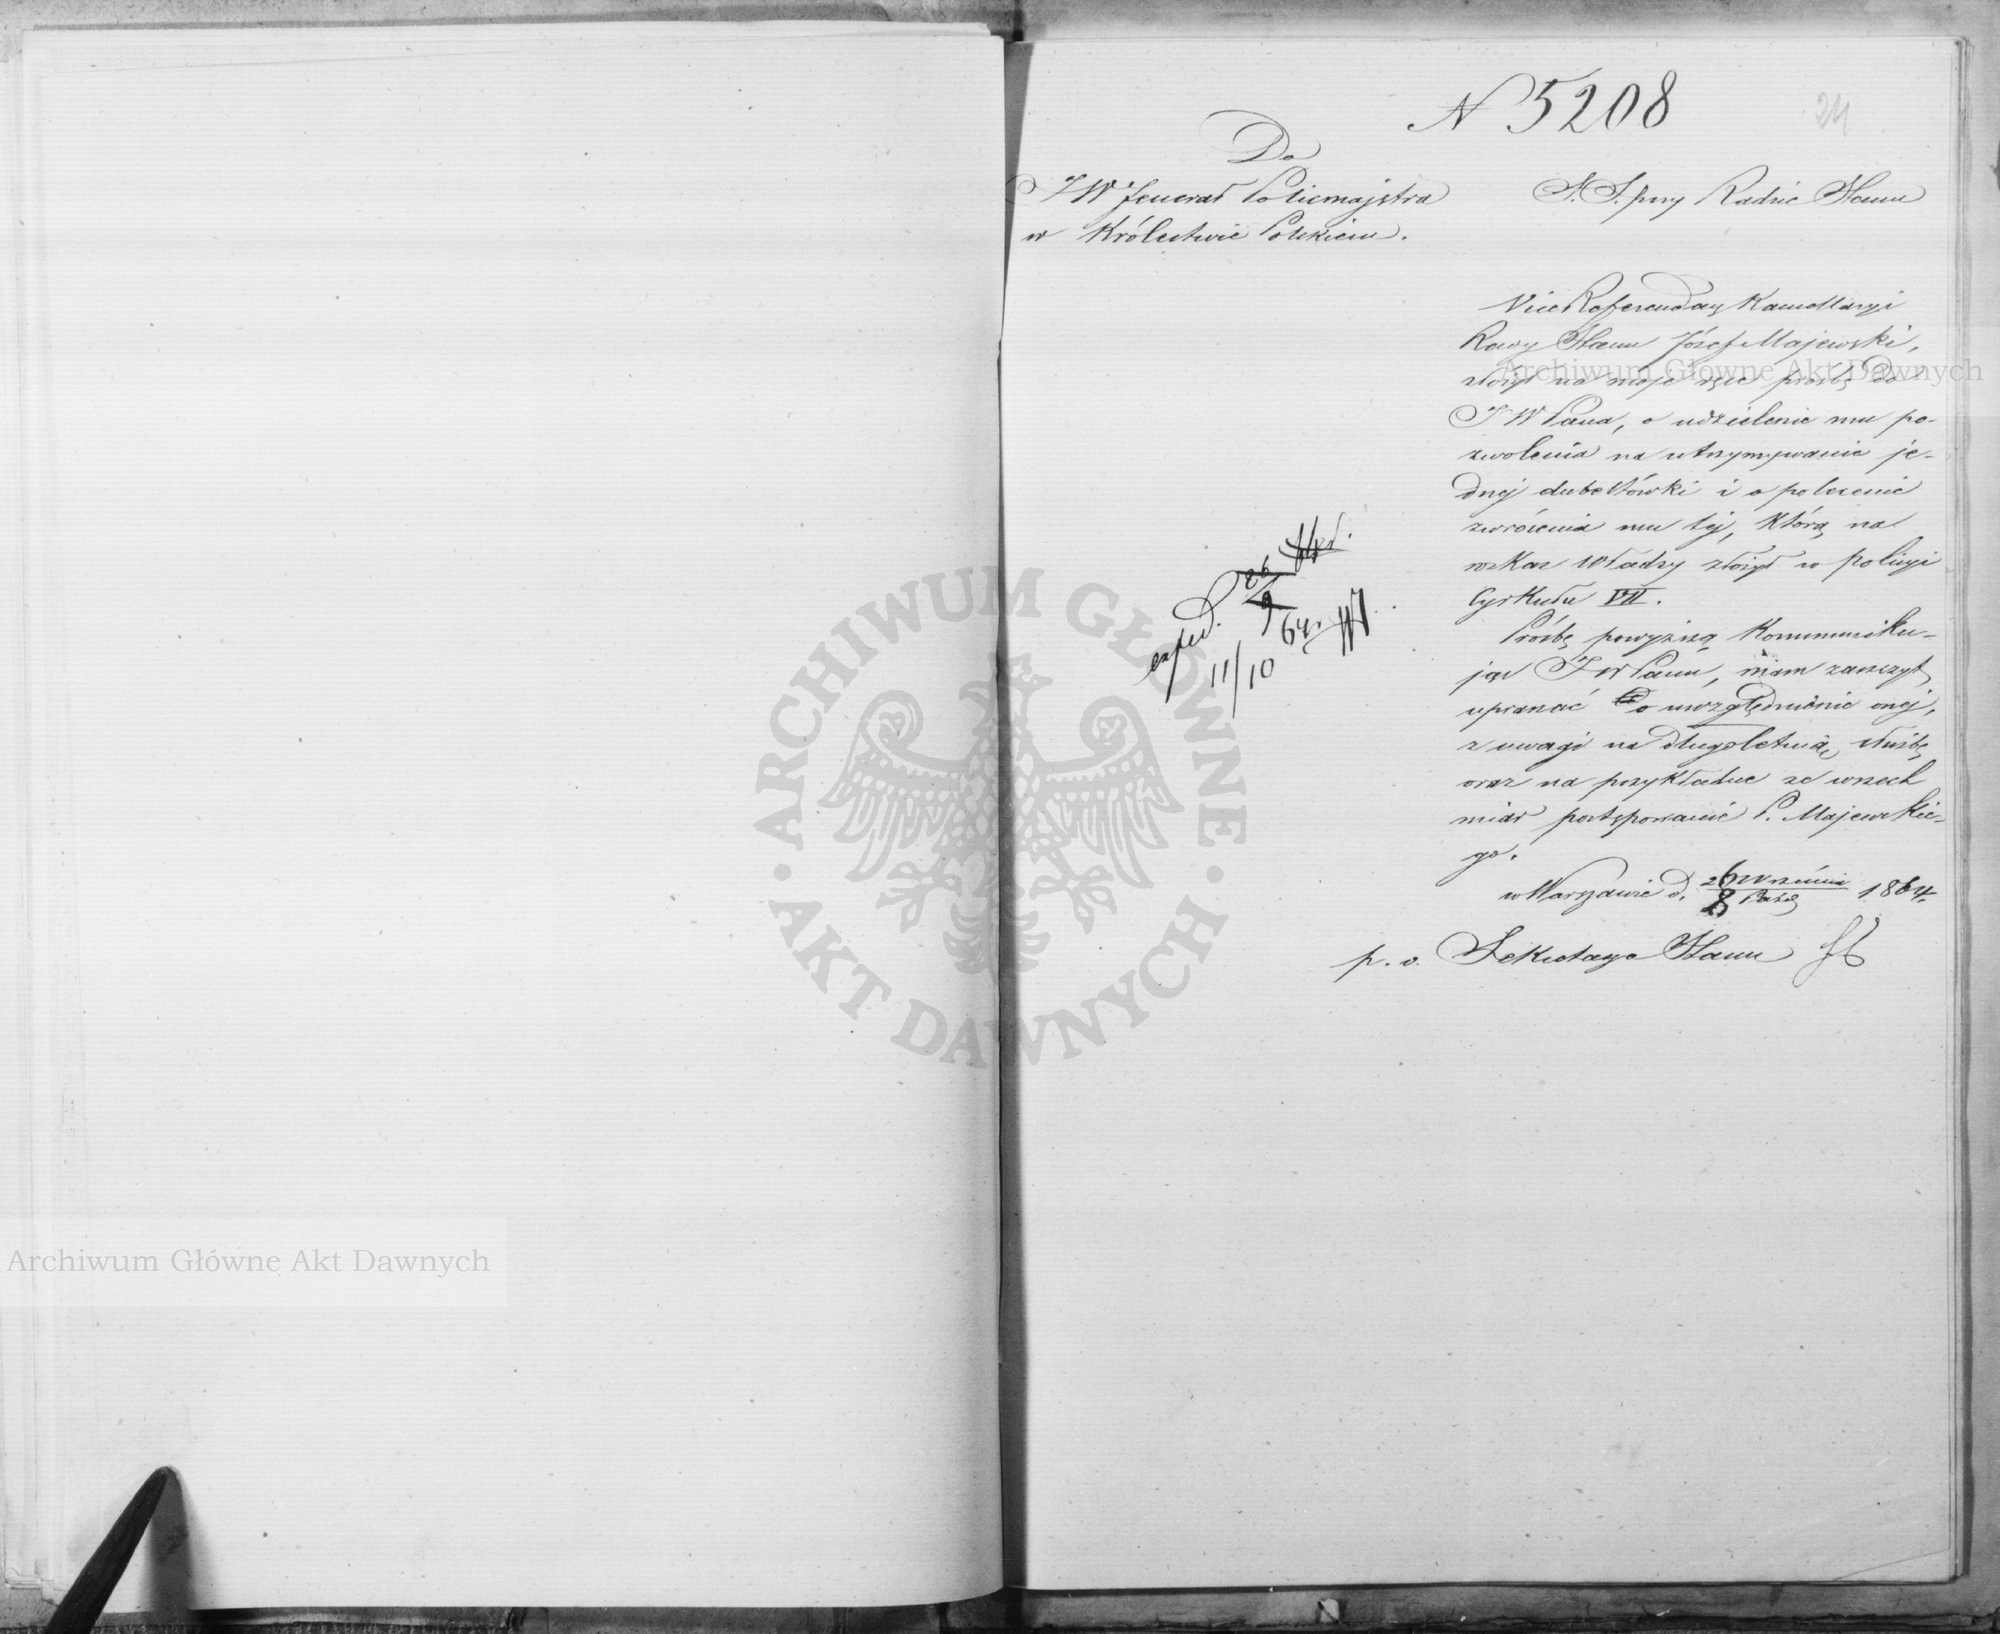 N 5208
24
Do
JW Jenerał Policmajstra
w Królestwie Polskiem.
S. S. przy Radzie Stanu
Vice Referendarz Kancellaryi
Rady Stanu Józef Majewski,
złożył na moje ręce prośbę do
JW Pana, o udzielenie mu po-
zwolenia na utrzymywanie je-
dnej dubeltówki i o polecenie
zwrócenia mu tej, którą na
rozkaz Władzy złożył w policyi
Cyrkułu VII.
Prośbę powyższą kommuniku-
jąc JW Panu, mam zaszczyt
upraszać o uwzględnienie onej,
z uwagi na długoletnią służbę
oraz na przykładne ze wszech
miar postępowanie P. Majewskie-
go.
w Warszawie d. 26 Września / 8 Paźd 1864.
p. o. Sekretarza Stanu
exped. 26/9 64.
11/10
ARCHIWUM GŁÓWNE
AKT DAWNYCH
Archiwum Główne Akt Dawnych
Archiwum Główne Akt Dawnych